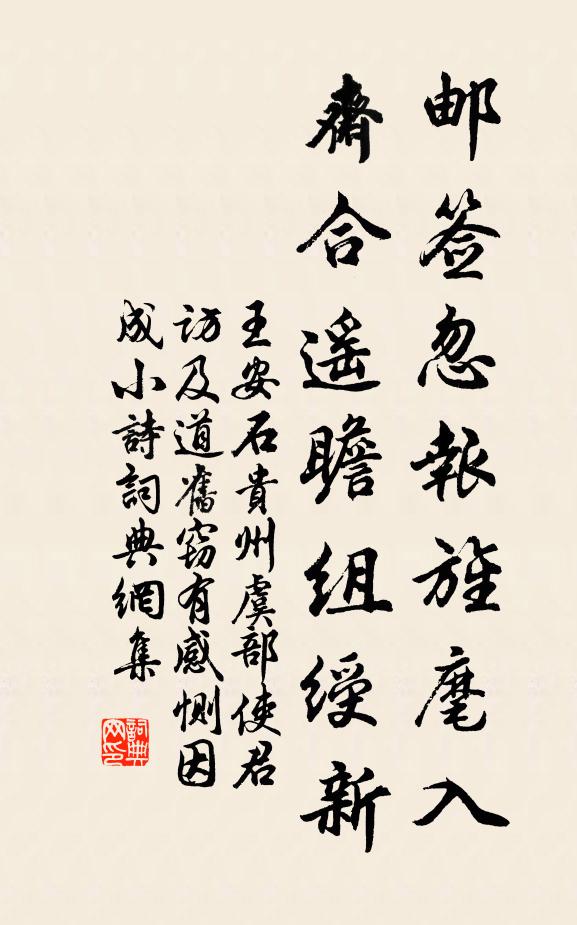 邮签忽報旌麾入
齋合遥瞻組綬新
王安石貴州虞部使君
訪及道舊窃有感惻因
成小詩詞典網集
詞典网印